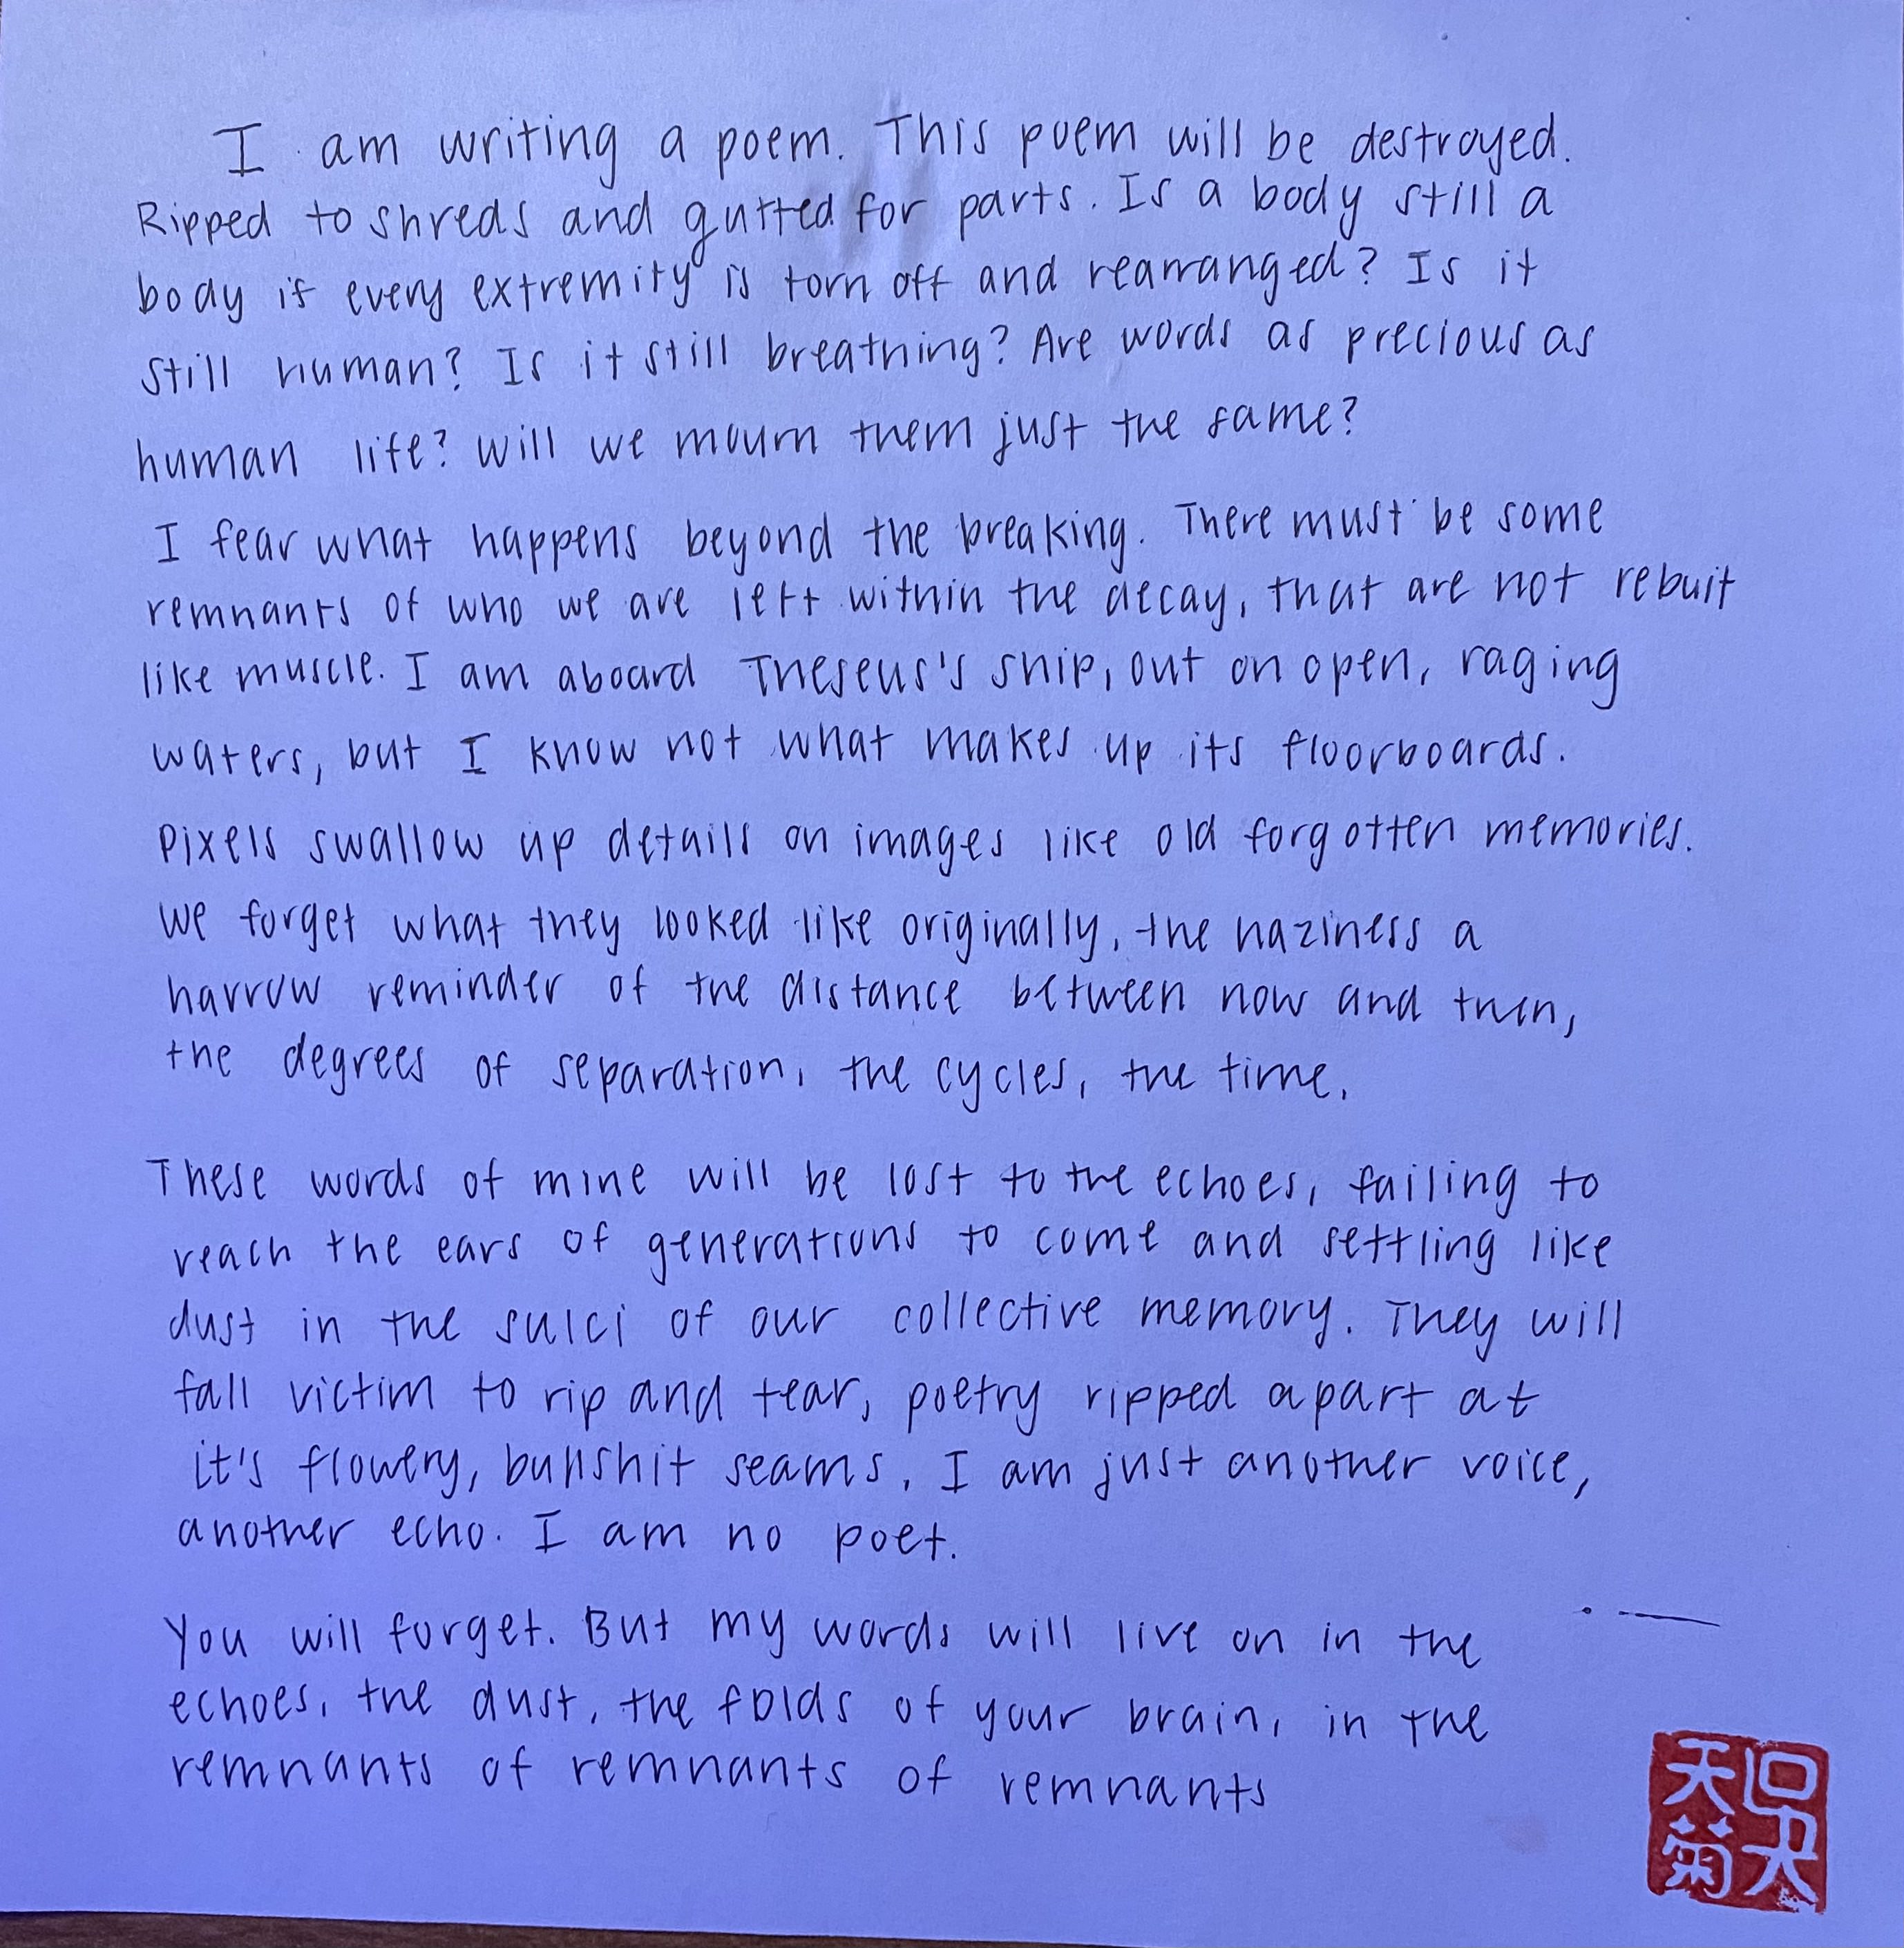 I am writing a poem. This poem will be destroyed.
Ripped to shreds and gutted for parts. Is a body still a
body if every extremity is torn off and rearranged? Is it
still human? Is it still breathing? Are words as precious as
human life? Will we mourn them just the same?
I fear what happens beyond the breaking. There must be some
remnants of who we are left within the decay, that are not rebuit
like muscle. I am aboard Theseus's ship, out on open, raging
waters, but I know not what makes up its floorboards.
Pixels swallow up details on images like old forgotten memories.
We forget what they looked like originally, the haziness a
harrow reminder of the distance between now and then,
the degrees of separation, the cycles, the time.
These words of mine will be lost to the echoes, failing to
reach the ears of generations to come and settling like
dust in the sulci of our collective memory. They will
fall victim to rip and tear, poetry ripped apart at
it's flowery, bullshit seams. I am just another voice,
another echo. I am no poet.
You will forget. But my words will live on in the
echoes, the dust, the folds of your brain, in the
remnants of remnants of remnants
吴
天菊